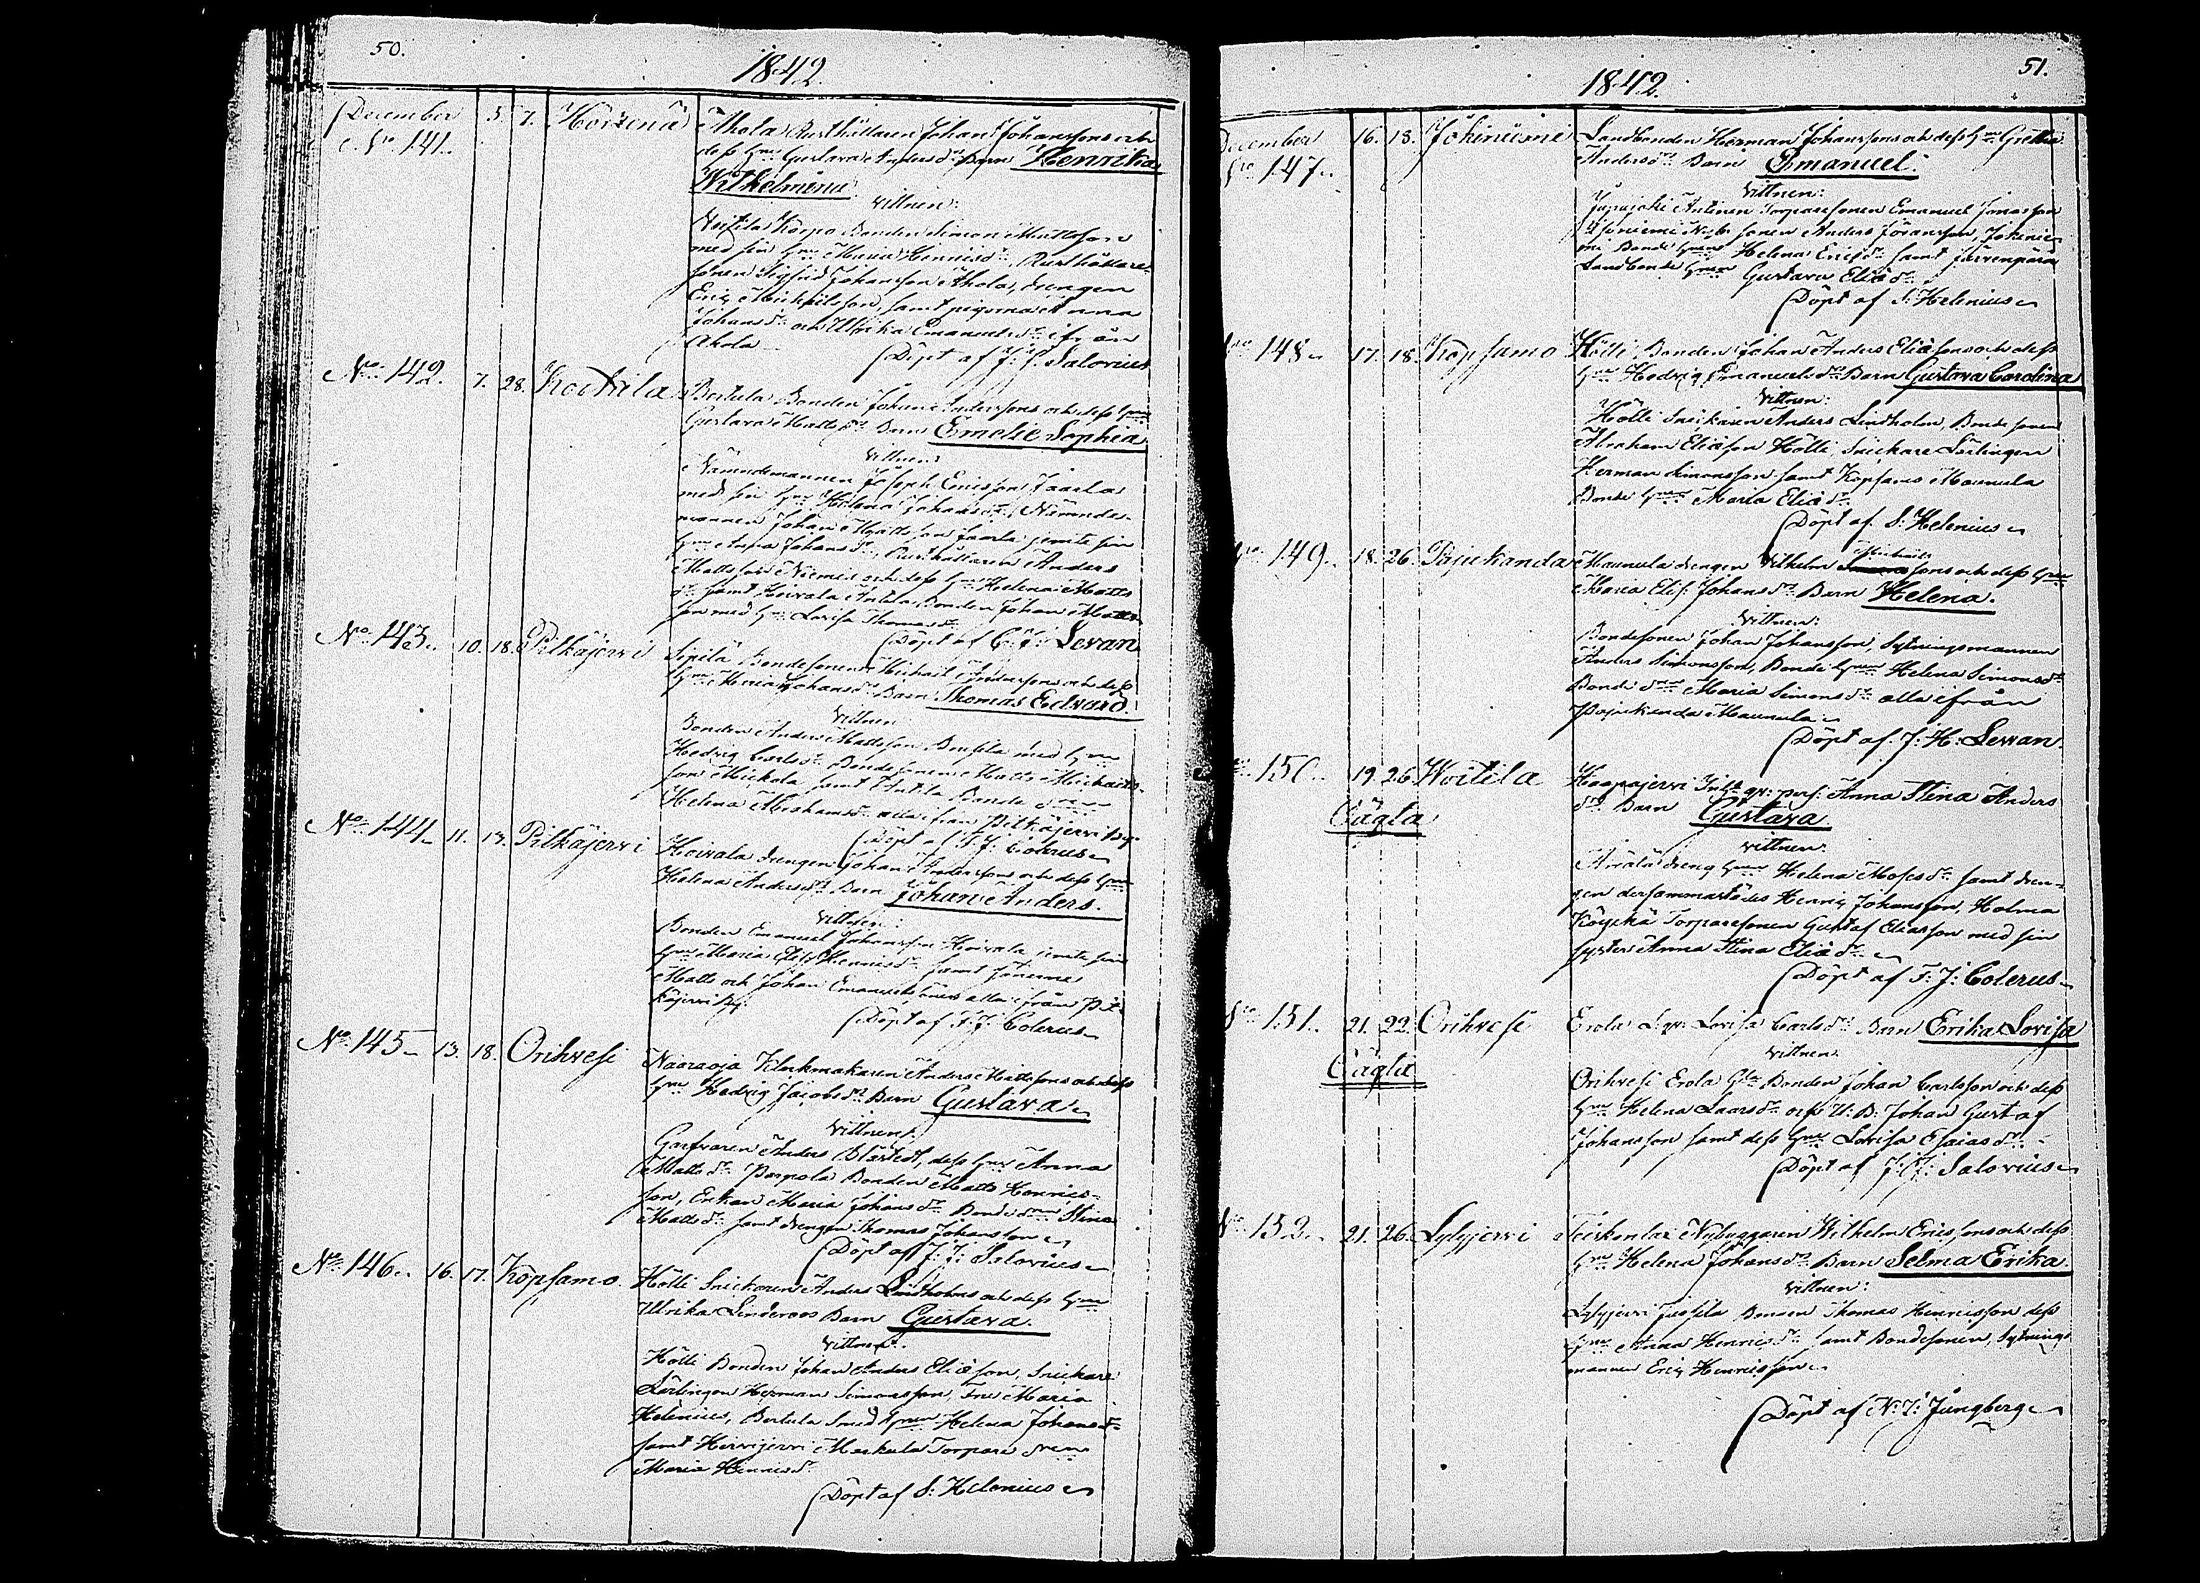 50.
1842.
December 5. 7. Ahola Rusthållaren Johan Johanssons och
No 141. dess Hru Gustava Andersdr Barn Henrika
Wilhelmina
Vittnen:
Korpo Bonden Simon Mattsson
med sin Hru Maria Henricsdr, Rusthållare-
sonen Sigfrid Johansson Ahola, drengen
Eric Michelsson, samt pigorna Anna
Johansdr och Ulrika Emanuelsdr ifrån
Ahola
Döpt af J. J. Salovius
No 142. 7. 28. Bertula Bonden Johan Anderssons och dess Hru
Gustava Mattsdr Barn Emelie Sophia
Vittnen:
Nämndemannen Joseph Ericsson Jaarla
med sin Hru Helena Johansdr, Nämnde-
mannen Johan Mattsson Jaarla jemte sin
Hru Anna Johansdr, Rusthållaren Anders
Mattsson Niemis och dess Hru Helena Matts
dr samt Heivala Antila Bonden Johan Matts-
son med Hru Lovisa Thomasdr
Döpt af C. J. Levan
No 143. 10. 18. Pitkäjervi Sipilä Bondesonen Michail Anderssons och dess
Hru Maria Johansdr Barn Thomas Edvard.
Vittnen
Bonden Anders Mattsson med Hru
Hedvig Carlsdr Bondesonen Matts Michails-
son Mickola samt Antila Bonde
Helena Abrahamsdr alla ifrån Pitkäjervi By.
Döpt af F. J. Colerus
No 144. 11. 13. Pitkäjervi Hoivala drengen Johan Anderssons och dess Hru
Helena Andersdr Barn Johan Anders.
Vittnen:
Bonden Emanuel Johansson Hoivala jemte sin
Hru Maria Elis: Henricsdr samt sönerne
Matts och Johan Emanuelssöner alla ifrån Pit-
käjervi By.
Döpt af F. J. Colerus
No 145. 13. 18. Orihvesi Naaraoja Klockmakaren Anders Mattssons och dess
Hru Hedvig Jacobsdr Barn Gustava
Vittnen:
Garfvaren Anders Blästedt, dess Hru Anna
Mattsdr Parpola Bonden Matts Henrics-
son, Enkan Maria Johansdr Bonde Stina
Mattsdr samt drengen Thomas Johansson
Döpt af J. J. Salovius
No 146. 16. 17. Köpsamo Hölli Snickaren Anders Lindholms och dess Hru
Ulrika Linderoos Barn Gustava.
Vittnen:
Hölli Bonden Johan Anders Eliäson, Snickare
Lärlingen Herman Simonsson, Fru Maria
Helenius, Bertula Smed Hrun Helena Johansdr
samt Hirvijervi Markula Torpare
Maria Henricsdr
Döpt af S. Helenius
51.
1842.
December 16. 18. Jokiniemi Landbonden Herman Johanssons och dess Hru Gretha
No 147. Andersdr Barn Emanuel.
Vittnen:
Antinen Torparesonen Emanuel Jonasson
sonen Anders Jöransson, Jokinie-
mi Bonde Hrun Helena Ericsdr samt Järvenpärä
Landbonde Hrun Gustava Eliädr
Döpt af S. Helenius
No 148. 17. 18. Köpsamo Hölli Bonden Johan Anders Eliäsons och dess
Hru Hedvig Emanuelsdr Barn Gustava Carolina
Vittnen:
Hölli Snickaren Anders Lindholm, Bondesonen
Abraham Eliäson Hölli, Snickare Lärlingen
Herman Simonsson samt Köpsamo Maunula
Bonde Hrun Maria Eliädr
Döpt af S. Helenius
No 149. 18. 26. Pajukanda Maunula drengen Vilhelm Michails sons och dess Hru
Maria Elis: Johansdr Barn Helena.
Vittnen:
Bondesonen Johan Johansson, Sytningsmannen
Anders Simonsson, Bonde Hrun Helena Simonsdr
Bonde Maria Simonsdr alla ifrån
Pajukanda Maunula
Döpt af J. H. Levan.
No 150. 19. 26. Woitila Haapajervi Inh. qv. pers. Anna Stina Anders
Oägta dr Barn Gustava
Vittnen:
dreng Hrun Helena Mosesdr samt dren-
gen dersammastädes Henric Johansson, Holma
Köyckä Torparesonen Gustaf Eliasson med sin
syster Anna Stina Eliädr
Döpt af F. J. Colerus
No 151. 21. 22. Orihvesi Erola L. qv. Lovisa Carlsdr Barn Erika Lovisa
Oägta
Vittnen
Orihvesi Erola Gla Bonden Johan Carlsson och dess
Hru Helena Laarsdr och U. B. Johan Gustaf
Johansson samt dess Hru Lovisa Esaiasdr
Döpt af J. J. Salovius
No 152. 21. 26. Lylyjervi Teiskonlax Nybyggaren Wilhelm Ericssons och dess
Hru Helena Johansdr Barn Selma Erika.
Vittnen:
Lylyjervi Jussila Bonden Thomas Henricsson dess
Hru Anna Henricsdr samt Bondesonen, Sytnings
mannen Eric Henricsson
Döpt af N. J. Jungberg